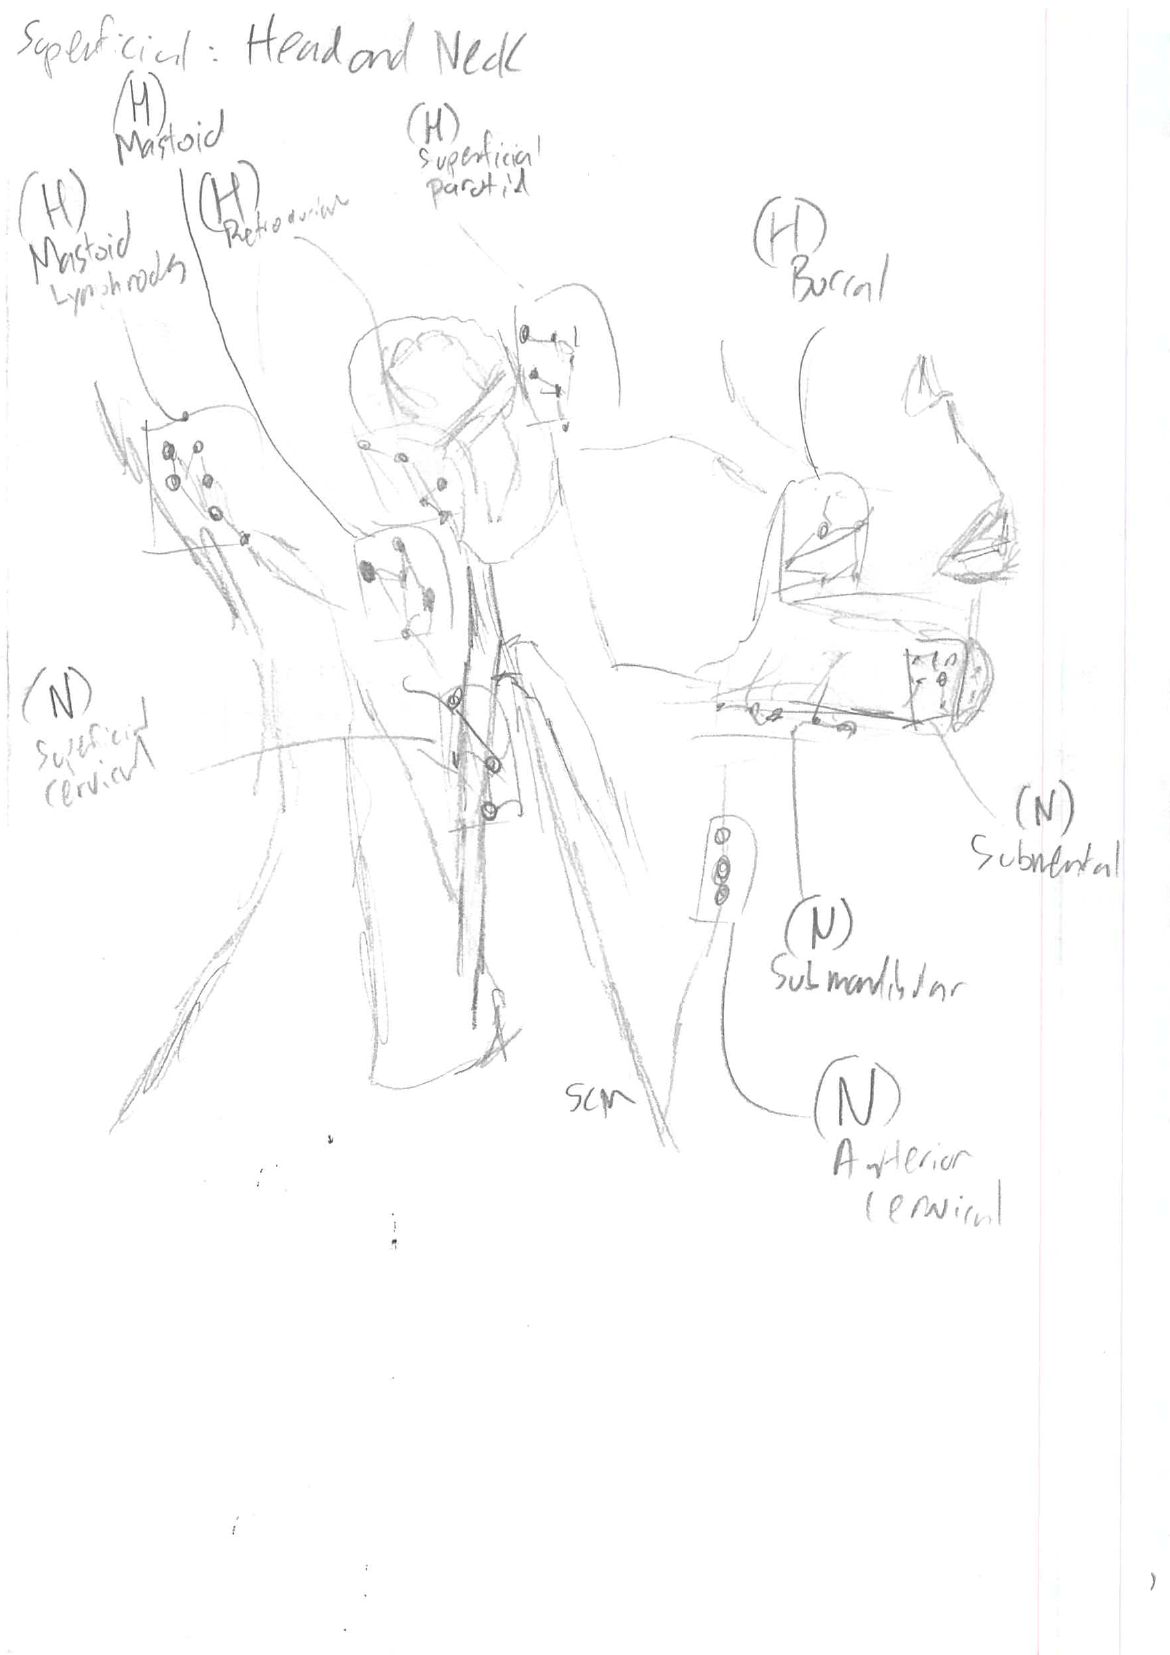 Superficial: Head and Neck
(H)
Mastoid
(H)
Superficial
parotid
(H)
Mastoid
Lymphnodes
(H)
Retroauricular
(H)
Buccal
(N)
Superficial
cervical
(N)
Submental
(N)
Submandibular
SCM
(N)
Anterior
cervical